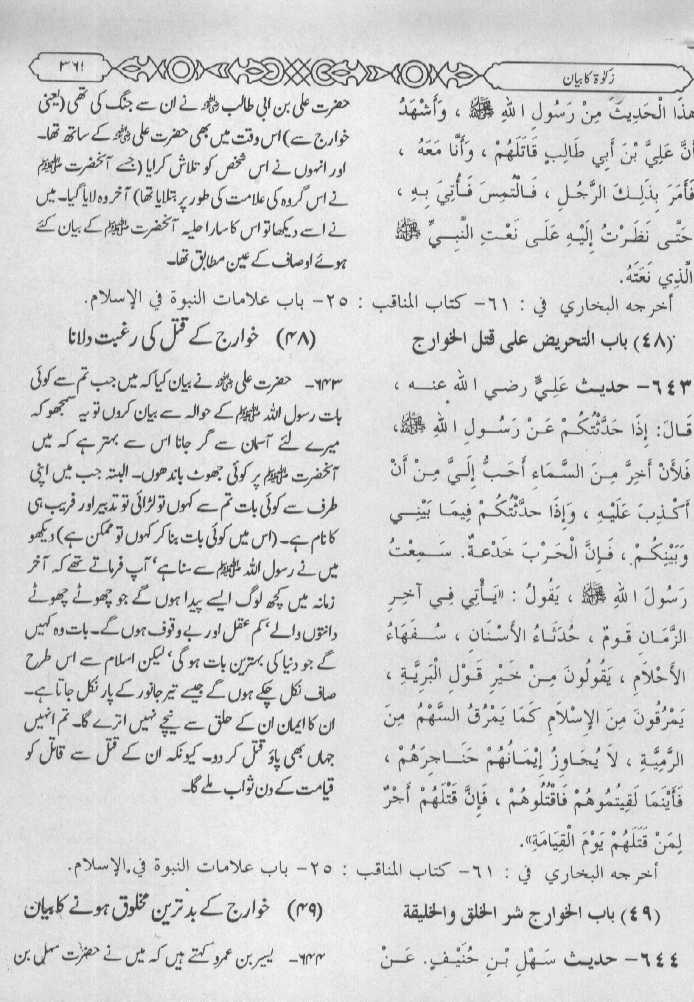 زکوٰۃ کا بیان
۳۶۱
هذَا الْحَدِيثَ مِنْ رَسُولِ اللهِ ﷺ ، وَأَشْهَدُ
أَنَّ عَلِيَّ بْنَ أَبِي طَالِبٍ قَاتَلَهُمْ ، وَأَنَا مَعَهُ ،
فَأَمَرَ بِذَلِكَ الرَّجُلِ ، فَالْتُمِسَ فَأُتِيَ بِهِ ،
حَتَّى نَظَرْتُ إِلَيْهِ عَلَى نَعْتِ النَّبِيِّ ﷺ
الَّذِي نَعَتَهُ.
حضرت علی بن ابی طالب رضی اللہ عنہ نے ان سے جنگ کی تھی (یعنی
خوارج سے) اس وقت میں بھی حضرت علی رضی اللہ عنہ کے ساتھ تھا۔
اور انہوں نے اس شخص کو تلاش کرایا (جسے آنحضرت ﷺ
نے اس گروہ کی علامت کی طور پر بتلایا تھا) آخر وہ لایا گیا۔ میں
نے اسے دیکھا تو اس کا سارا حلیہ آنحضرت ﷺ کے بیان کئے
ہوئے اوصاف کے عین مطابق تھا۔
أخرجه البخاري في : ٦١- كتاب المناقب : ٢٥- باب علامات النبوة في الإسلام.
(٤٨) باب التحريض على قتل الخوارج
(۴۸) خوارج کے قتل کی رغبت دلانا
٦٤٣- حديث عَلِيٍّ رضي الله عنه ،
قَالَ: إِذَا حَدَّثْتُكُمْ عَنْ رَسُولِ اللهِ ﷺ،
فَلأَنْ أَخِرَّ مِنَ السَّمَاءِ أَحَبُّ إِلَيَّ مِنْ أَنْ
أَكْذِبَ عَلَيْهِ ، وَإِذَا حَدَّثْتُكُمْ فِيمَا بَيْنِي
وَبَيْنَكُمْ ، فَإِنَّ الْحَرْبَ خَدْعَةٌ. سَمِعْتُ
رَسُولَ اللهِ ﷺ ، يَقُولُ : «يَأْتِي فِي آخِرِ
الزَّمَانِ قَومٌ ، حُدَثَاءُ الأَسْنَانِ ، سُفَهَاءُ
الأَحْلاَمِ ، يَقُولُونَ مِنْ خَيْرِ قَوْلِ الْبَرِيَّةِ ،
يَمْرُقُونَ مِنَ الإِسْلاَمِ كَمَا يَمْرُقُ السَّهْمُ مِنَ
الرَّمِيَّةِ ، لاَ يُجَاوِزُ إِيْمَانُهُمْ حَنَاجِرَهُمْ ،
فَأَيْنَمَا لَقِيتُمُوهُمْ فَاقْتُلُوهُمْ ، فَإِنَّ قَتْلَهُمْ أَجْرٌ
لِمَنْ قَتَلَهُمْ يَوْمَ الْقِيَامَةِ».
۶۴۳- حضرت علی رضی اللہ عنہ نے بیان کیا کہ میں جب تم سے کوئی
بات رسول اللہ ﷺ کے حوالہ سے بیان کروں تو یہ سمجھو کہ
میرے لئے آسمان سے گر جانا اس سے بہتر ہے کہ میں
آنحضرت ﷺ پر کوئی جھوٹ باندھوں۔ البتہ جب میں اپنی
طرف سے کوئی بات تم سے کہوں تو لڑائی تو تدبیر اور فریب ہی
کا نام ہے۔ (اس میں کوئی بات بنا کر کہوں تو ممکن ہے) دیکھو
میں نے رسول اللہ ﷺ سے سنا ہے‘ آپ فرماتے تھے کہ آخر
زمانہ میں کچھ لوگ ایسے پیدا ہوں گے جو چھوٹے چھوٹے
دانتوں والے‘ کم عقل اور بے وقوف ہوں گے۔ بات وہ کہیں
گے جو دنیا کی بہترین بات ہو گی‘ لیکن اسلام سے اس طرح
صاف نکل چکے ہوں گے جیسے تیر جانور کے پار نکل جاتا ہے۔
ان کا ایمان ان کے حلق سے نیچے نہیں اترے گا۔ تم انہیں
جہاں بھی پاؤ قتل کر دو۔ کیونکہ ان کے قتل سے قاتل کو
قیامت کے دن ثواب ملے گا۔
أخرجه البخاري في : ٦١- كتاب المناقب : ٢٥- باب علامات النبوة في الإسلام.
(٤٩) باب الخوارج شر الخلق والخليقة
(۴۹) خوارج کے بدترین مخلوق ہونے کا بیان
٦٤٤- حديث سَهْلِ بْنِ حُنَيْفٍ. عَنْ
۶۴۴- یسیر بن عمرو کہتے ہیں کہ میں نے حضرت سہل بن